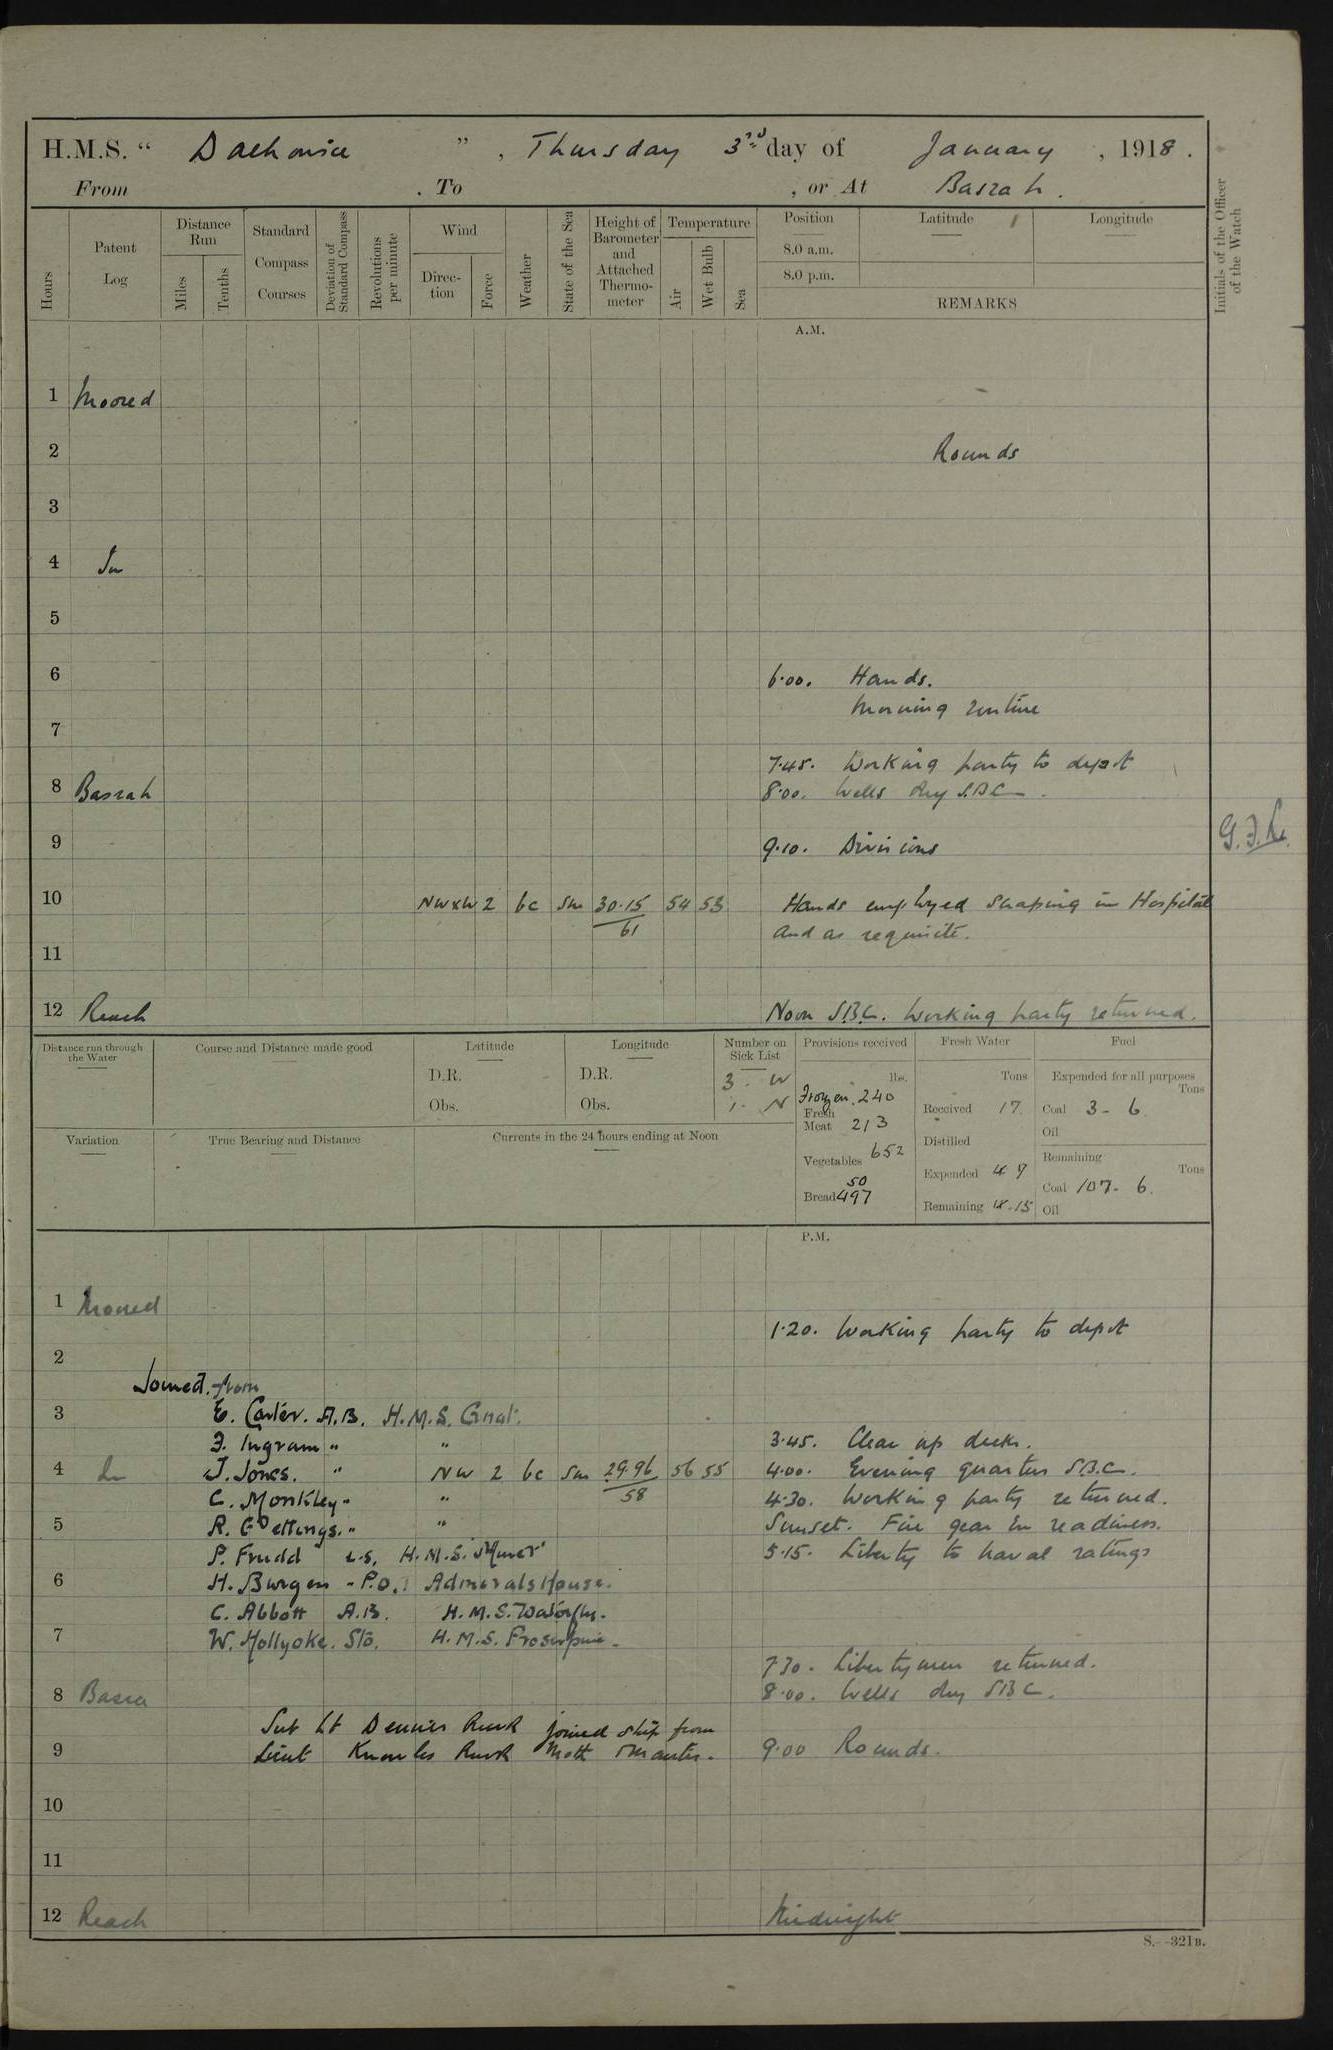 H.M.S. " Dalhousie ", Thursday 3rd day of January, 1918.
From . To , or At Basrah.
Hours
Patent Log
Distance Run
Miles
Tenths
Standard Compass Courses
Deviation of Standard Compass
Revolutions per minute
Wind
Direction
Force
Weather
State of the Sea
Height of Barometer and Attached Thermometer
Temperature
Air
Wet Bulb
Sea
Position
Latitude
Longitude
8.0 a.m.
8.0 p.m.
REMARKS
Initials of the Officer of the Watch
A.M.
1 Moored
2 Rounds
3
4 In
5
6 6.00. Hands.
Morning routine
7
7.45. Working party to depot
8 Basrah 8.00. Wells dry S.B.C.
9 9.10. Divisions
10 NWxW 2 bc Sm 30.15 54 53 Hands employed scraping in Hospital
61 and as requisite.
11
12 Reach Noon S.B.C. Working party returned.
Distance run through the Water
Course and Distance made good
Latitude
D.R.
Obs.
Longitude
D.R.
Obs.
Number on Sick List
3. W
1. N
Provisions received
lbs.
Frozen. 240
Fresh Meat 213
Vegetables 652
50
Bread 497
Fresh Water
Tons
Received 17
Distilled
Expended 4 9
Remaining 15
Fuel
Expended for all purposes
Tons
Coal 3 - 6
Oil
Remaining
Tons
Coal 107 - 6.
Oil
Variation
True Bearing and Distance
Currents in the 24 hours ending at Noon
P.M.
1 Moored
1.20. Working party to depot
2
Joined from
3 E. Carter. A.B. H.M.S. Gnat.
F. Ingram " " 3.45. Clear up decks.
4 In J. Jones. " NW 2 bc Sm 29.96 56 55 4.00. Evening quarters S.B.C.
C. Monkley " " 58 4.30. Working party returned.
5 R. Goettings. " " Sunset. Fire gear in readiness.
P. Frudd L.S. H.M.S. 5.15. Liberty to naval ratings
6 H. Burgen - P.O. Admirals House.
C. Abbott A.B. H.M.S. Waterfly.
7 W. Hollyoke. Sto. H.M.S. Proserpine.
7.30. Libertymen returned.
8 Basra 8.00. Wells dry SBC.
Sub Lt Dennis joined ship from
9 Lieut Knowles 9.00 Rounds.
10
11
12 Reach Midnight
S.—321B.